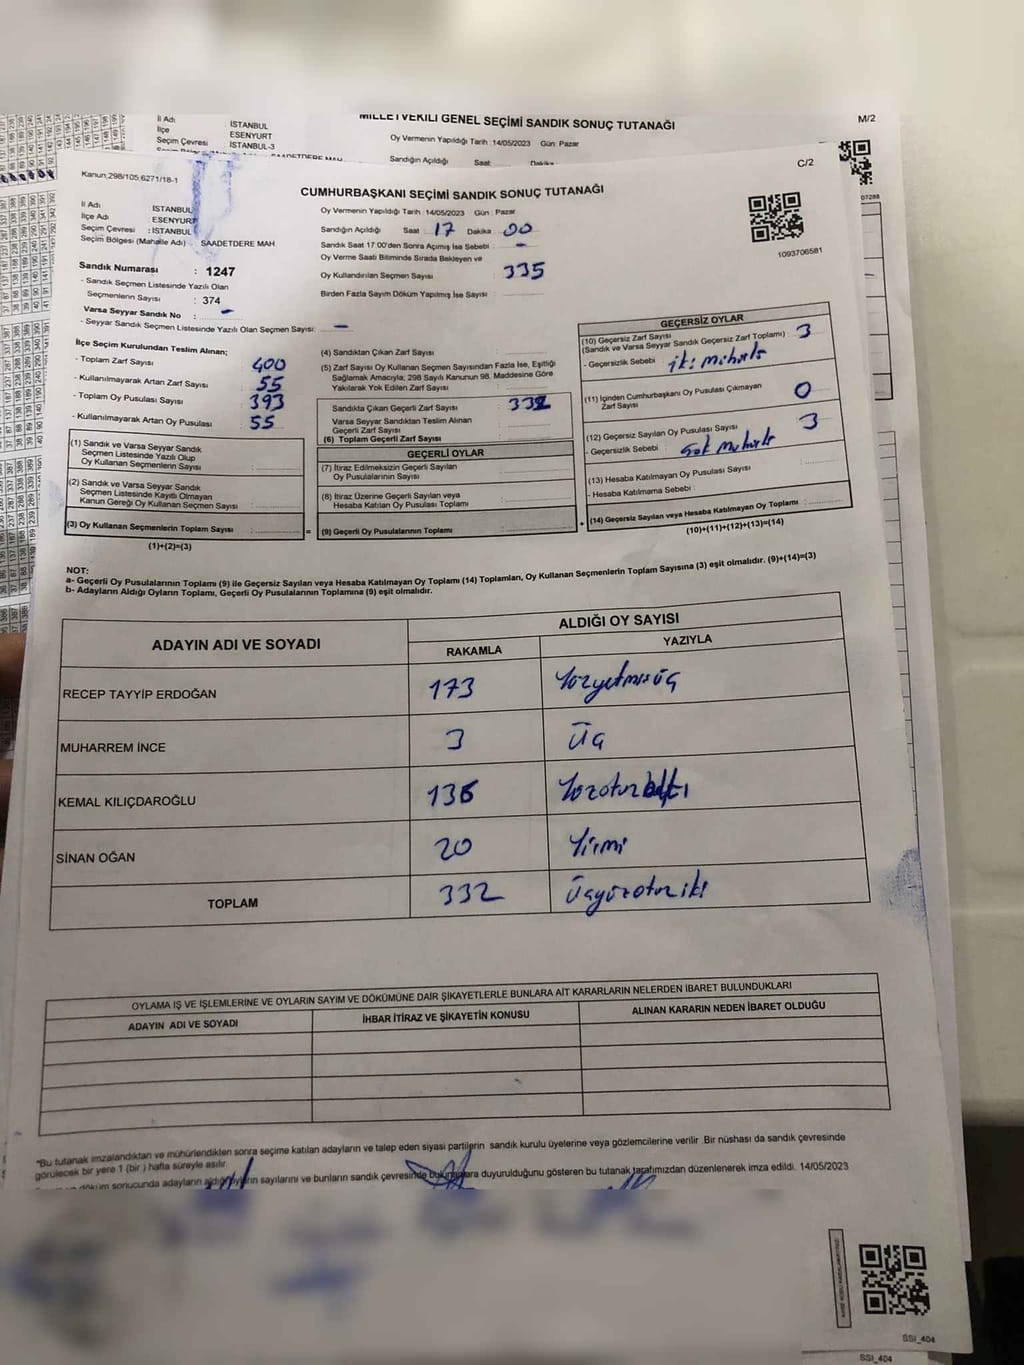 MİLLETVEKİLİ GENEL SEÇİMİ SANDIK SONUÇ TUTANAĞI
M/2
İl Adı İSTANBUL
İlçe ESENYURT
Seçim Çevresi İSTANBUL-3
SAADETDERE MAH
Oy Vermenin Yapıldığı Tarih :14/05/2023 Gün: Pazar
Sandığın Açıldığı Saat Dakika
Kanun,298/105;6271/18-1
CUMHURBAŞKANI SEÇİMİ SANDIK SONUÇ TUTANAĞI
C/2
İl Adı : İSTANBUL
İlçe Adı : ESENYURT
Seçim Çevresi : İSTANBUL
Seçim Bölgesi (Mahalle Adı) : SAADETDERE MAH.
Sandık Numarası : 1247
- Sandık Seçmen Listesinde Yazılı Olan
Seçmenlerin Sayısı : 374
Varsa Seyyar Sandık No : -
- Seyyar Sandık Seçmen Listesinde Yazılı Olan Seçmen Sayısı: -
Oy Vermenin Yapıldığı Tarih :14/05/2023 Gün : Pazar
Sandığın Açıldığı Saat 17 Dakika 00
Sandık Saat 17:00'den Sonra Açımış İse Sebebi : -
Oy Verme Saati Bitiminde Sırada Bekleyen ve
Oy Kullandırılan Seçmen Sayısı 335
Birden Fazla Sayım Döküm Yapılmış İse Sayısı :
1093706581
İlçe Seçim Kurulundan Teslim Alınan;
- Toplam Zarf Sayısı 400
- Kullanılmayarak Artan Zarf Sayısı 55
- Toplam Oy Pusulası Sayısı 393
- Kullanılmayarak Artan Oy Pusulası 55
(1) Sandık ve Varsa Seyyar Sandık
Seçmen Listesinde Yazılı Olup
Oy Kullanan Seçmenlerin Sayısı :
(2) Sandık ve Varsa Seyyar Sandık
Seçmen Listesinde Kayıtlı Olmayan
Kanun Gereği Oy Kullanan Seçmen Sayısı :
(3) Oy Kullanan Seçmenlerin Toplam Sayısı :
(1)+(2)=(3)
=
(4) Sandıktan Çıkan Zarf Sayısı :
(5) Zarf Sayısı Oy Kullanan Seçmen Sayısından Fazla İse, Eşitliği
Sağlamak Amacıyla; 298 Sayılı Kanunun 98. Maddesine Göre
Yakılarak Yok Edilen Zarf Sayısı :
Sandıkta Çıkan Geçerli Zarf Sayısı : 332
Varsa Seyyar Sandıktan Teslim Alınan
Geçerli Zarf Sayısı :
(6) Toplam Geçerli Zarf Sayısı :
GEÇERLİ OYLAR
(7) İtiraz Edilmeksizin Geçerli Sayılan
Oy Pusulasının Sayısı :
(8) İtiraz Üzerine Geçerli Sayılan veya
Hesaba Katılan Oy Pusulası Toplamı :
(9) Geçerli Oy Pusulalarının Toplamı :
+
GEÇERSİZ OYLAR
(10) Geçersiz Zarf Sayısı
(Sandık ve Varsa Seyyar Sandık Geçersiz Zarf Toplamı) : 3
- Geçersizlik Sebebi : iki mühürlü
(11) İçinden Cumhurbaşkanı Oy Pusulası Çıkmayan
Zarf Sayısı 0
(12) Geçersiz Sayılan Oy Pusulası Sayısı : 3
- Geçersizlik Sebebi : çok mühürlü
(13) Hesaba Katılmayan Oy Pusulası Sayısı :
- Hesaba Katılmama Sebebi :
(14) Geçersiz Sayılan veya Hesaba Katılmayan Oy Toplamı :
(10)+(11)+(12)+(13)=(14)
NOT:
a- Geçerli Oy Pusulalarının Toplamı (9) ile Geçersiz Sayılan veya Hesaba Katılmayan Oy Toplamı (14) Toplamları, Oy Kullanan Seçmenlerin Toplam Sayısına (3) eşit olmalıdır. (9)+(14)=(3)
b- Adayların Aldığı Oyların Toplamı, Geçerli Oy Pusulalarının Toplamına (9) eşit olmalıdır.
ADAYIN ADI VE SOYADI
ALDIĞI OY SAYISI
RAKAMLA YAZIYLA
RECEP TAYYİP ERDOĞAN 173 Yüzyetmişüç
MUHARREM İNCE 3 Üç
KEMAL KILIÇDAROĞLU 136
SİNAN OĞAN 20 Yirmi
TOPLAM 332 Üçyüzotuziki
OYLAMA İŞ VE İŞLEMLERİNE VE OYLARIN SAYIM VE DÖKÜMÜNE DAİR ŞİKAYETLERLE BUNLARA AİT KARARLARIN NELERDEN İBARET BULUNDUKLARI
ADAYIN ADI VE SOYADI İHBAR İTİRAZ VE ŞİKAYETİN KONUSU ALINAN KARARIN NEDEN İBARET OLDUĞU
*Bu tutanak imzalandıktan ve mühürlendikten sonra seçime katılan adayların ve talep eden siyasi partilerin sandık kurulu üyelerine veya gözlemcilerine verilir .Bir nüshası da sandık çevresinde
görülecek bir yere 1 (bir ) hafta süreyle asılır.
döküm sonucunda adayların aldığı oyların sayılarını ve bunların sandık çevresinde bulunanlara duyurulduğunu gösteren bu tutanak tarafımızdan düzenlenerek imza edildi. 14/05/2023
SSI_404
SSI_404